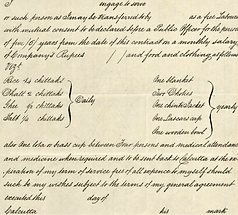 I engage to serve
or such person as I may be transferred by as a free Labourer
with mutual consent to be declared before a Public Officer for the period
of five (5) years from the date of this contract on a monthly salary
of Company's Rupees ( ) and food and clothing as follows
Viz!.
Rice 14 chittaks
Dhall 2 chittaks
Ghee ½ chittaks
Salt ¼ chittaks
Daily
One blanket
Two Dhoties
One chintz Jacket
One Lascars cap
One wooden bowl
yearly
also One lota or brass cup between four persons and medical attendance
and medicine when required and to be sent back to Calcutta at the ex-
piration of my term of service free of all expence to myself should
such be my wishes subject to the terms of my general agreement
executed this day of
Calcutta his mark